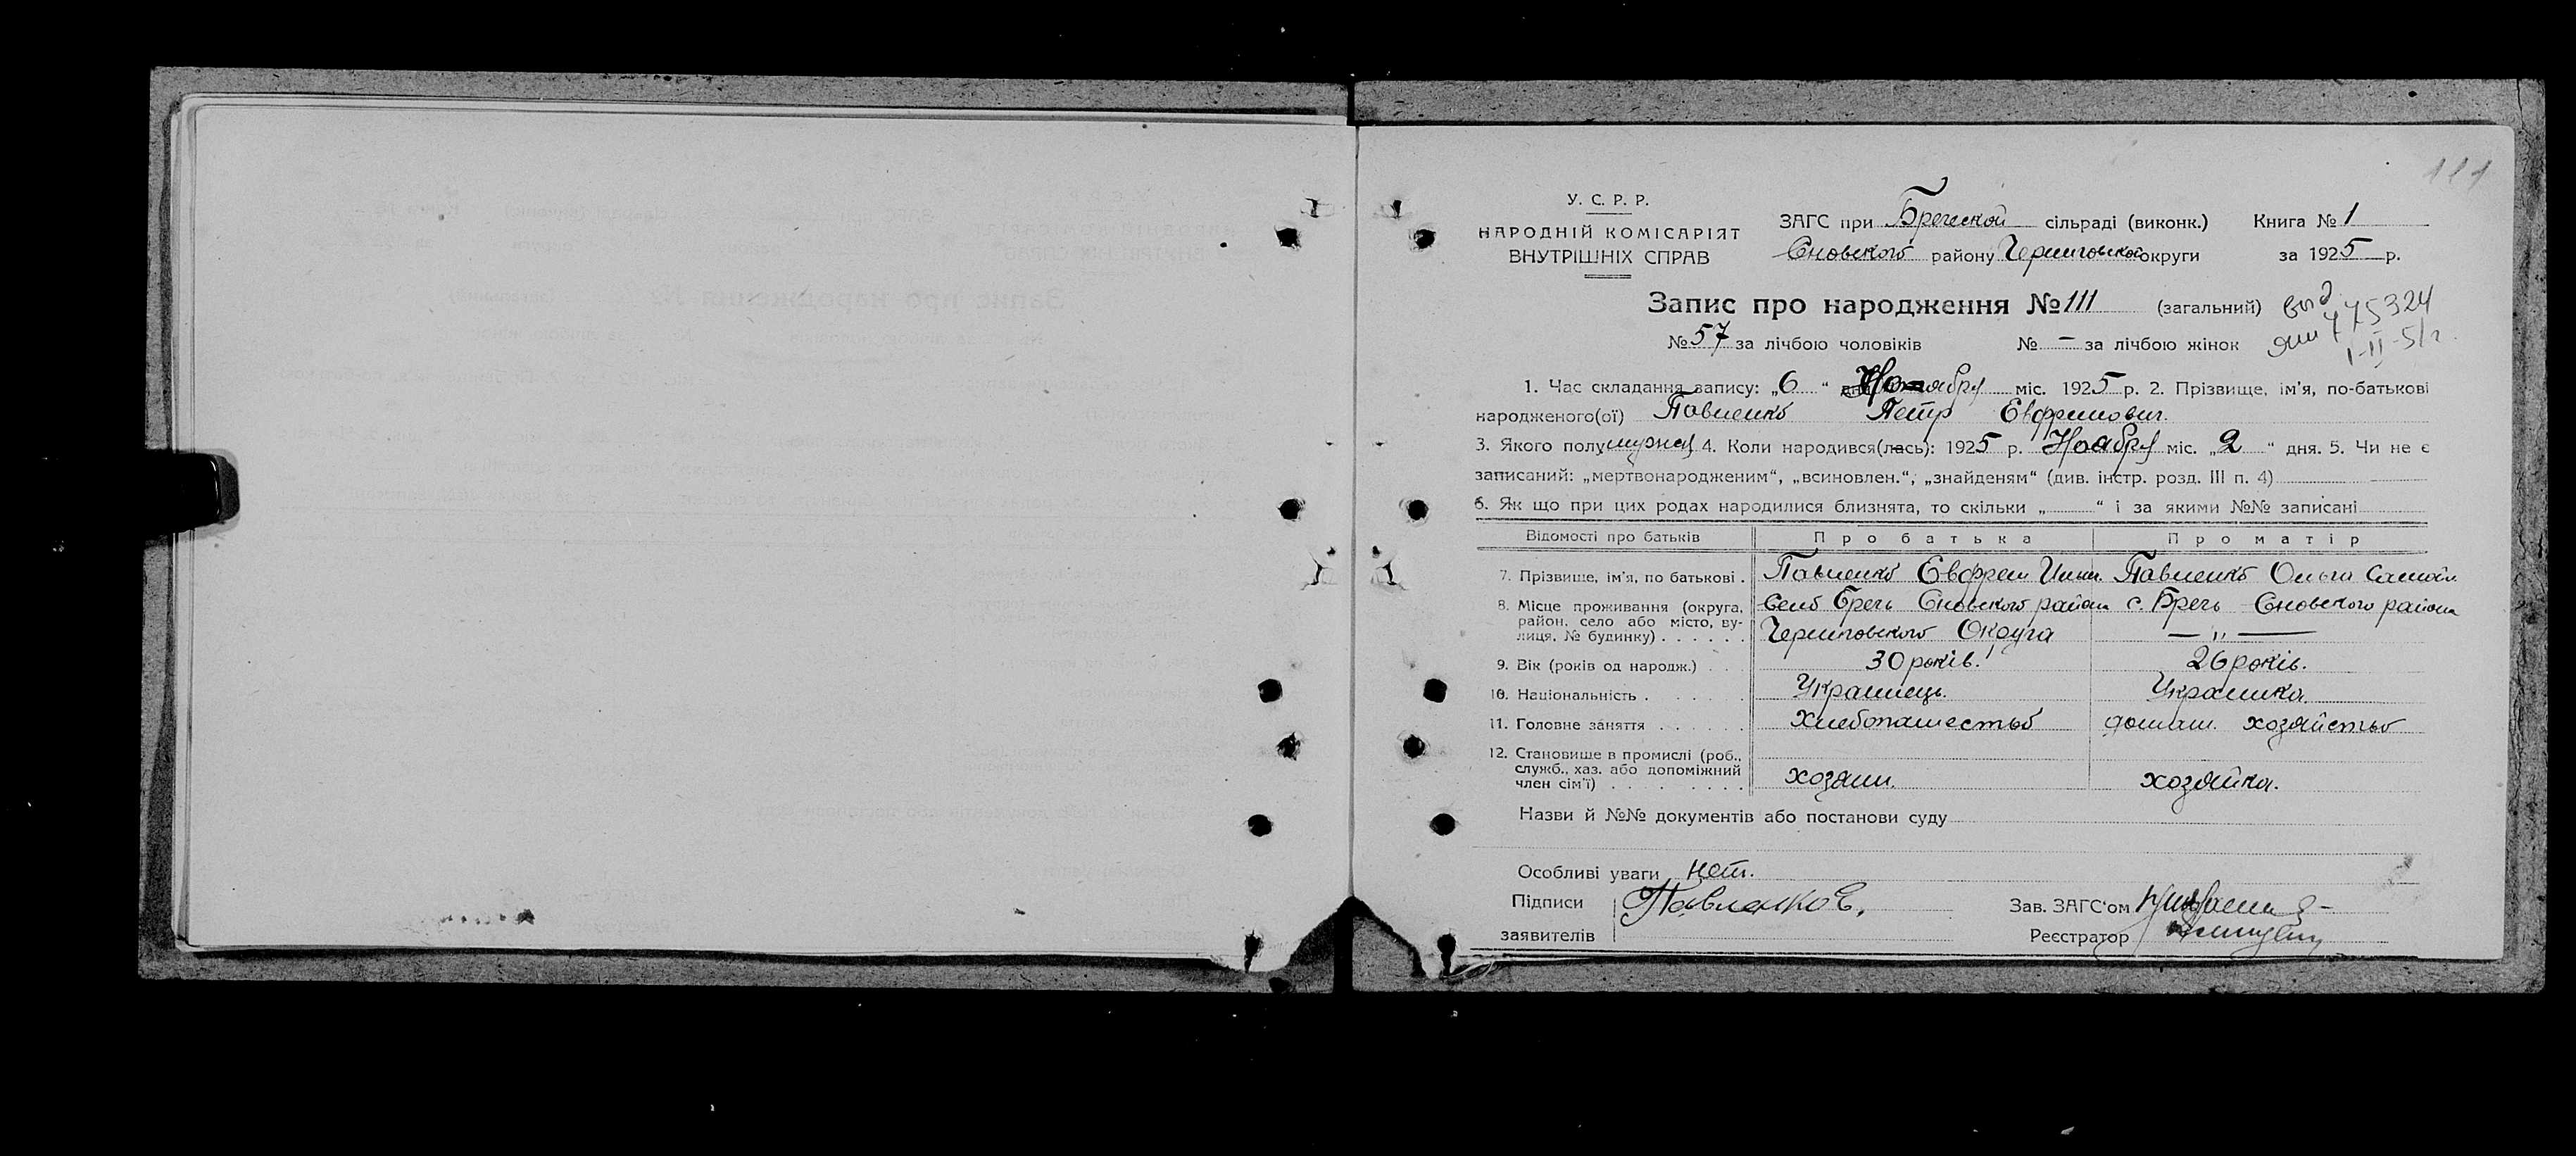 111
У. С. Р. Р.
НАРОДНІЙ КОМІСАРІЯТ
ВНУТРІШНІХ СПРАВ
ЗАГС при Бречской сільраді (виконк.) Книга № 1
Сновского району Черниговской округи за 1925 р.
Запис про народження № 111 (загальний)
№ 57 за лічбою чоловіків № — за лічбою жінок
выд
775324
1-II-51г.
1. Час складання запису: „6“ дня Ноября міс. 1925 р. 2. Прізвище, ім'я, по-батькові
народженого(ої) Павленко Петр Евфремович.
3. Якого полу мужск 4. Коли народився(лась): 1925 р. Ноября міс. „2“ дня. 5. Чи не є
записаний: „мертвонародженим“, „всиновлен.“, „знайденям“ (див. інстр. розд. III п. 4)
6. Як що при цих родах народилися близнята, то скільки „ “ і за якими №№ записані
Відомості про батьків Про батька Про матір
7. Прізвище, ім'я, по батькові . Павленко Евфрем Павленко Ольга Самойл.
8. Місце проживання (округа, район, село або місто, ву-
лиця, № будинку) . . . . . . Село Бречь Сновского района Черниговского Округа с. Бречь Сновского района — „ —
9. Вік (років од народж.) . . . 30 років. 26 років.
10. Національність . . . . . . Украинець. Украинка.
11. Головне заняття . . . . . . Хлебопашество домаш. хозяйство
12. Становище в промислі (роб.,
служб., хаз. або допоміжний
член сім'ї) . . . . . . . . хозяин. хозяйка.
Назви й №№ документів або постанови суду
Особливі уваги нет.
Підписи Павленко Е. Зав. ЗАГС'ом
заявителів Реєстратор